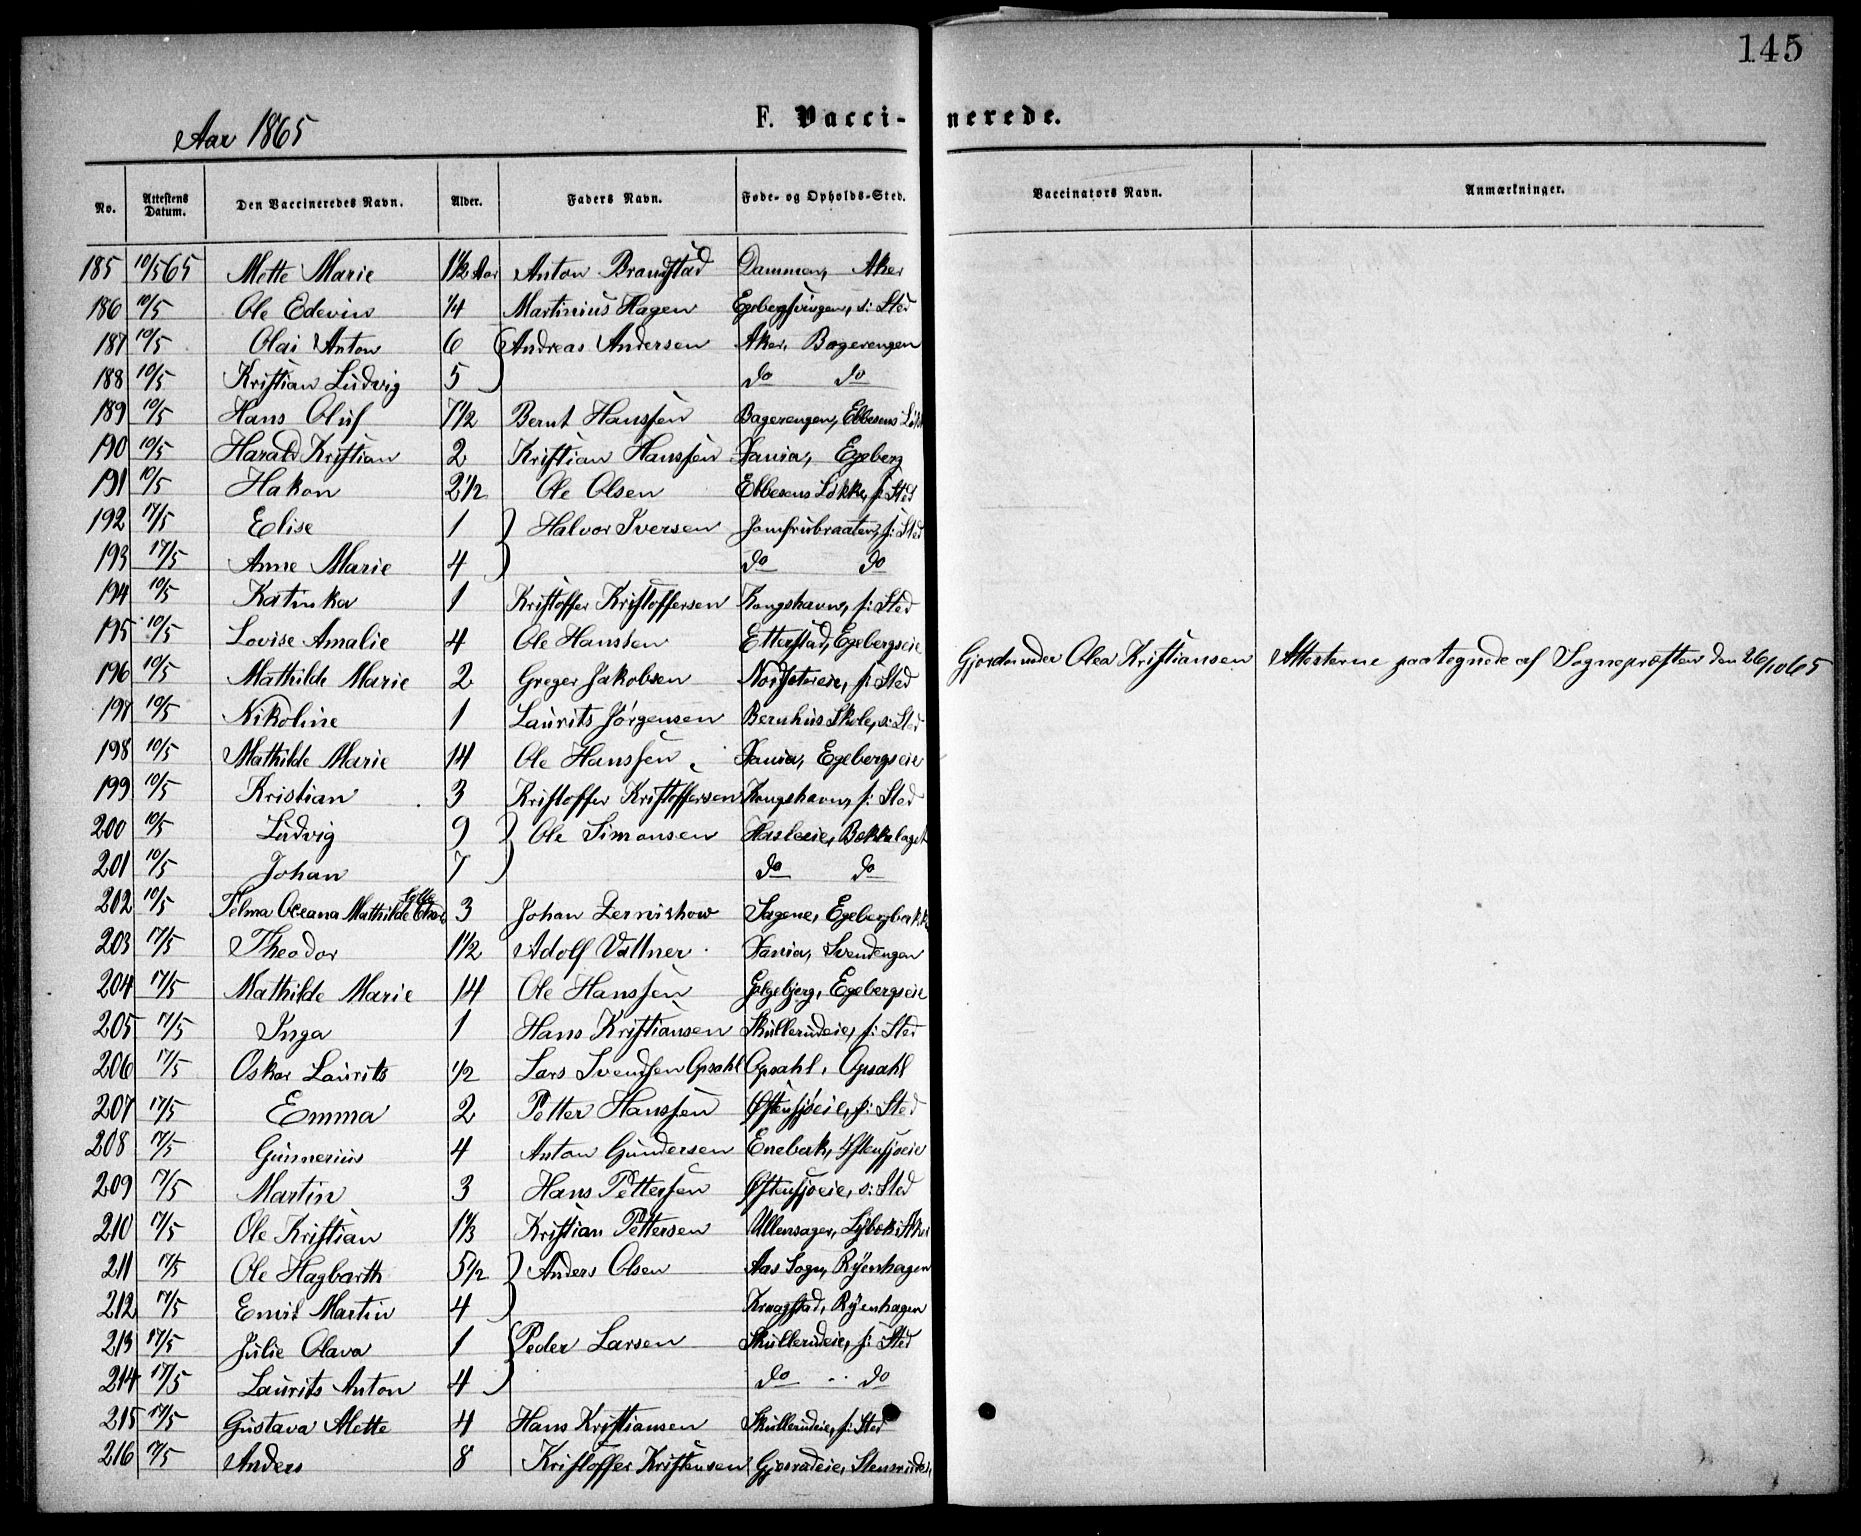 145
F. Vacci- nerede.
Aar 1865
No. Attestens Datum. Den Vaccineredes Navn. Alder. Faders Navn. Føde- og Opholds-Sted. Vaccinators Navn. Anmærkninger.
185 10/5 65 Mette Marie 1 1/2 Aar Anton Brandstad Dammen, Aker
186 10/5 Ole Edevin 1/4 Martinius Hagen Egebergsvingen, s: Sted
187 10/5 Olai Anton 6 Andreas Andersen Aker, Bagerengen
188 10/5 Kristian Ludvig 5 do do
189 10/5 Hans Oluf 7 1/2 Bernt Hanssen Bagerengen, Ebbesens
190 10/5 Harald Kristian 2 Kristian Hanssen Xania, Egeberg
191 10/5 Hakon 2 1/2 Ole Olsen Ebbesens Løkke, s: Sted
192 17/5 Elise 1 Halvor Iversen Jomfrubraaten, s: Sted
193 17/5 Anne Marie 4 do do
194 10/5 Katinka 1 Kristoffer Kristoffersen Kongshavn, s: Sted
195 10/5 Lovise Amalie 4 Ole Hanssen Etterstad, Egebergseie
Gjordemoder Olea Kristiansen Attesterne paategnede af Sognepræsten den 26/10 65
196 10/5 Mathilde Marie 2 Greger Jakobsen s: Sted
197 10/5 Nikoline 1 Laurits Jørgensen Bernhus Skole, s: Sted
198 10/5 Mathilde Marie 14 Ole Hanssen Xania, Egebergseie
199 10/5 Kristian 3 Kristoffer Kristoffersen Kongshavn, s: Sted
200 10/5 Ludvig 9 Ole Simonsen Hasleeie, Bekkelaget
201 10/5 Johan 7 do do
202 10/5 Telma Oceana Mathilde 3 Johan Zernichow Sagene, Egebergbakk
203 17/5 Theodor 1 1/2 Adolf Vallner Xania, Svendengen
204 17/5 Mathilde Marie 14 Ole Hanssen Galgebjerg, Egebergseie
205 17/5 Inga 1 Hans Kristiansen Skullerudeie, s: Sted
206 17/5 Oskar Laurits 1/2 Lars Svendsen Opsahl Opsahl, Opsahl
207 17/5 Emma 2 Petter Hanssen Østensjøeie, s: Sted
208 17/5 Gunnerius 4 Anton Gundersen Enebak, Østensjøeie
209 17/5 Martin 3 Hans Pettersen Østensjøeie, s: Sted
210 17/5 Ole Kristian 1 1/3 Kristian Pettersen Ullensager,
211 17/5 Ole Hagbarth 5 1/2 Anders Olsen Aas Sogn, Ryenhagen
212 17/5 Emil Martin 4 Kraagstad, Ryenhagen
213 17/5 Julie Olava 1 Peder Larsen Skullerudeie, s: Sted
214 17/5 Laurits Anton 4 do do
215 17/5 Gustava Mette 4 Hans Kristiansen Skullerudeie, s: Sted
216 17/5 Anders 8 Kristoffer Kristensen Gjersrudeie, Stensrudeie